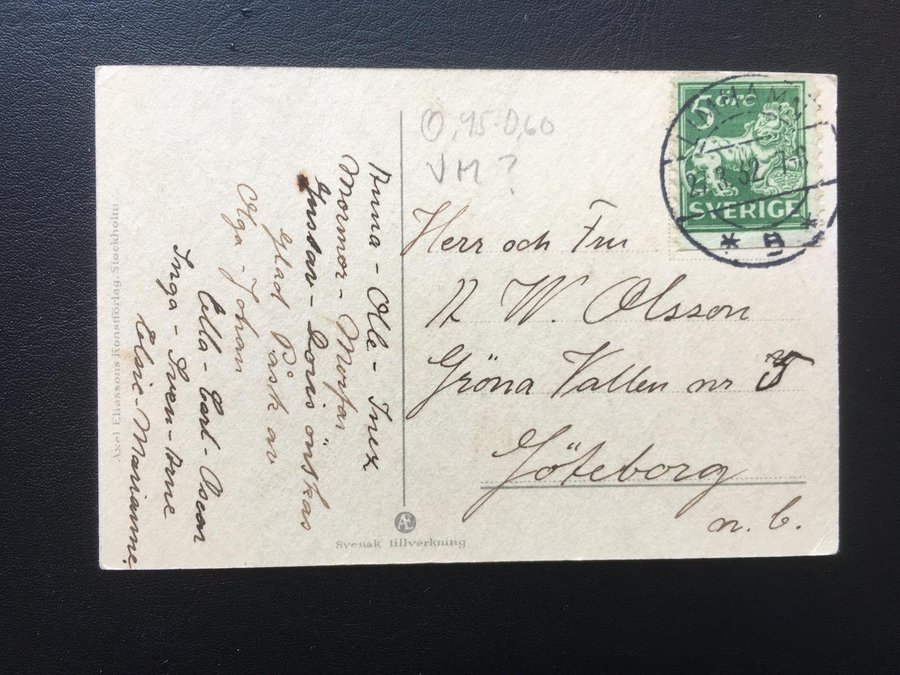 Anna - Olle - Inez
Mormor - Morfar
Gustav - Doris önskas
Glad Påsk av
Olga - Johan
Ella - Carl - Oscar
Inga - Sven-Arne
Marianne.
0,95-0,60
VM?
Herr och Fru
W. Olsson
Gröna Vallen nr 5
Göteborg
n. b.
5 ÖRE
SVERIGE
27.3.32
* B *
Axel Eliassons Konstförlag. Stockholm
Æ
Svensk tillverkning